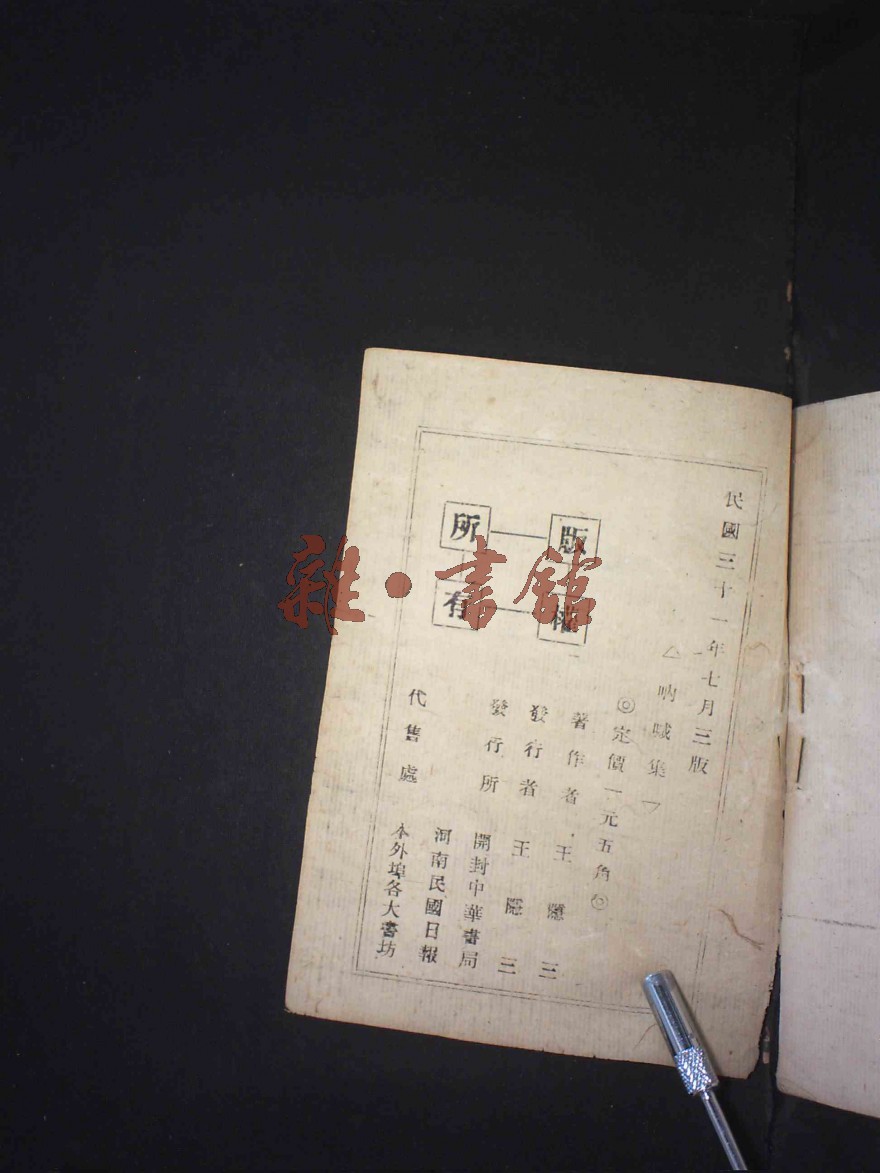 民國三十一年七月三版
△吶喊集▽
◎定價一元五角◎
著作者 王隱三
發行者 王隱三
發行所 開封中華書局
河南民國日報
代售處 本外埠各大書坊
版權所有
雜·書館